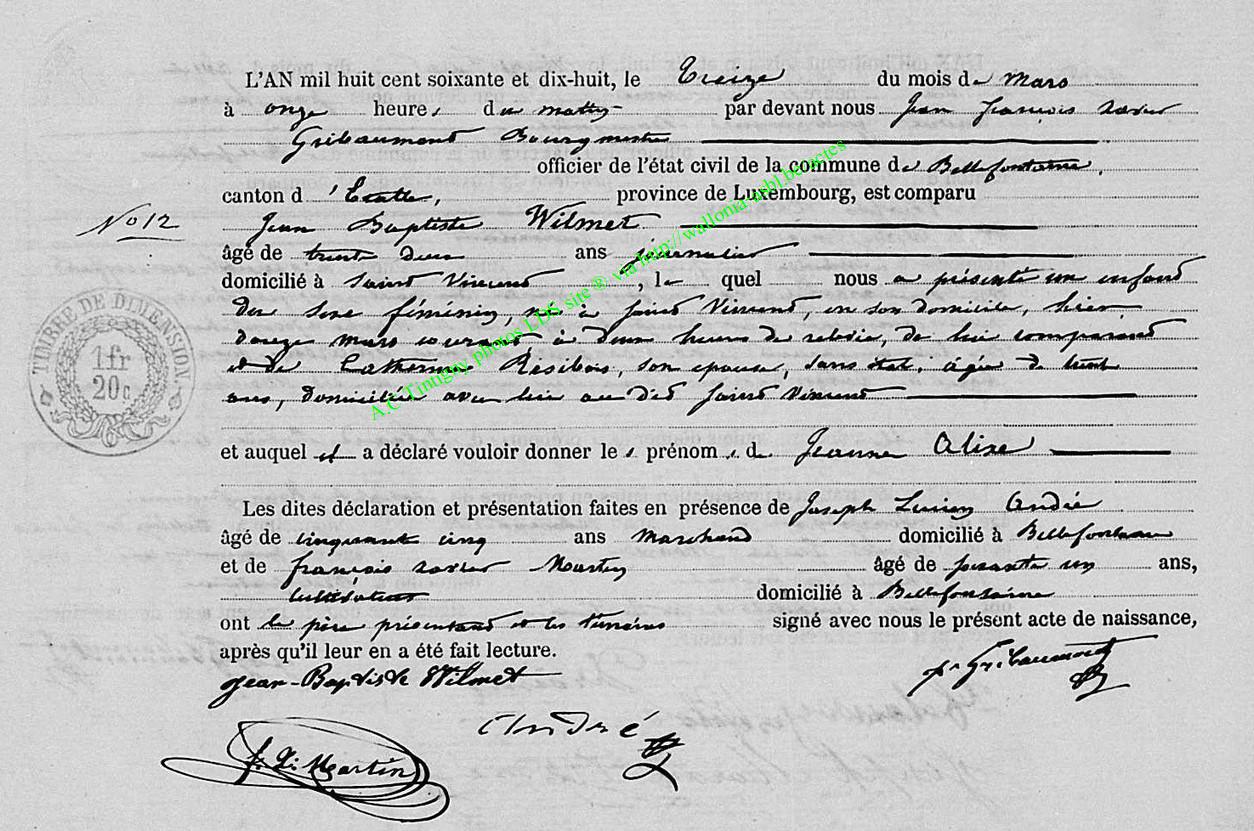 L'AN mil huit cent soixante et dix-huit, le treize du mois de mars
à onze heures du matin par devant nous Jean François Xavier
Gribaumont Bourgmestre
officier de l'état civil de la commune de Bellefontaine,
canton d'Etalle, province de Luxembourg, est comparu
No 12
Jean Baptiste Wilmet
âgé de trente deux ans journalier
domicilié à Saint Vincent, le quel nous a présenté un enfant
du sexe féminin, né à Saint Vincent, en son domicile, hier
douze mars courant, à deux heures de relevée, de lui comparant
et de Catherine Résibois, son épouse, sans état, âgée de trente
ans, domiciliée avec lui au dit Saint Vincent
TIMBRE DE DIMENSION
1fr
20c
et auquel il a déclaré vouloir donner les prénoms de Jeanne Alixe
Les dites déclaration et présentation faites en présence de Joseph Lucien André
âgé de cinquante cinq ans Marchand domicilié à Bellefontaine
et de françois xavier Martin âgé de soixante un ans,
cultivateur domicilié à Bellefontaine
ont le père présentant et les témoins signé avec nous le présent acte de naissance,
après qu'il leur en a été fait lecture.
Jean-Baptiste Wilmet
Gribaumont
André
Martin
A.C Tintigny photos LDS site ® via http://wallonia-asbl.be/actes